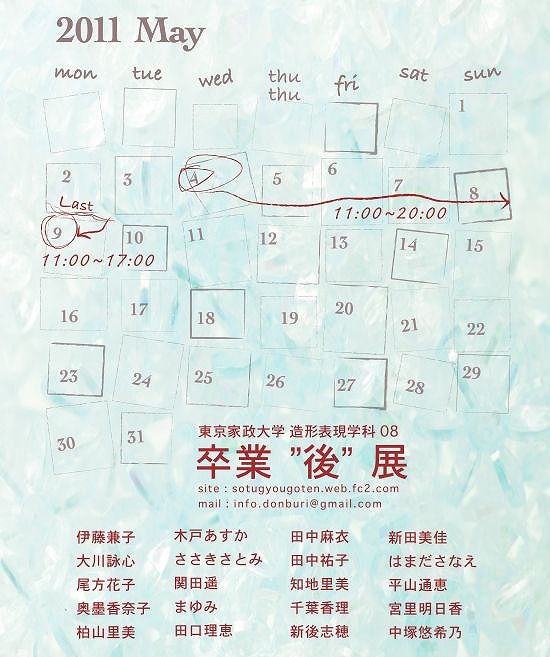 2011 May
mon tue wed thu fri sat sun
thu
1
2 3 4 5 6 7 8
11:00~20:00
Last
9 10 11 12 13 14 15
11:00~17:00
16 17 18 19 20 21 22
23 24 25 26 27 28 29
30 31
東京家政大学 造形表現学科 08
卒業 ”後” 展
site : sotugyougoten.web.fc2.com
mail : info.donburi@gmail.com
伊藤兼子 木戸あすか 田中麻衣 新田美佳
大川詠心 ささきさとみ 田中祐子 はまださなえ
尾方花子 関田遥 知地里美 平山通恵
奥墨香奈子 まゆみ 千葉香理 宮里明日香
柏山里美 田口理恵 新後志穂 中塚悠希乃